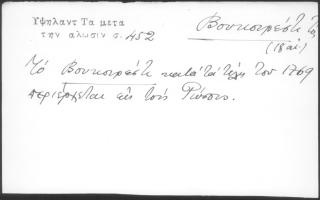 Υψηλαντ Τα μετα
την αλωσιν σ. 452
Βουκουρέστι
(18 αι.)
Τό Βουκουρέστι κατά τά τέλη του 1769
περιέρχεται εις τούς Ρώσσους.